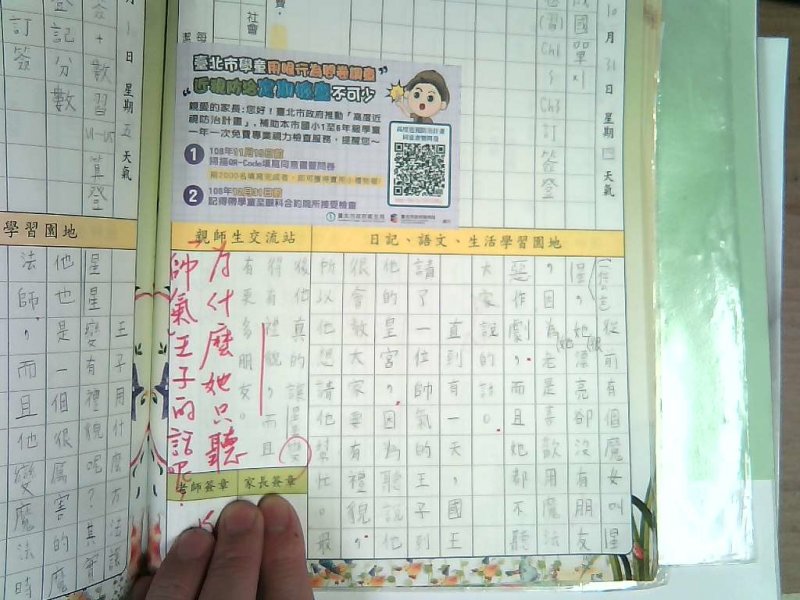 10月31日星期
天氣
社會
每
費。
國
單
(習)Ch1
Ch3
訂
簽
登
臺北市學童用眼行為問卷調查
近視防治定期檢查不可少
親愛的家長:您好!臺北市政府推動「高度近
視防治計畫」,補助本市國小1至6年級學童
一年一次免費專業視力檢查服務,提醒您~
1
108年11月15日前
掃描QR-Code填寫同意書暨問卷
2
108年12月31日前
記得帶學童至眼科合約院所接受檢查
親師生交流站
日記、語文、生活學習園地
從前有個魔女叫星
星,她漂亮卻沒有朋友
,因為老是喜歡用魔法
惡作劇,而且她都不聽
大家說的話。
直到有一天,國王
請了一位帥氣的王子到
他的皇宮,因為聽說他
很會教大家要有禮貌,
所以他想請他幫忙。最
後他真的讓星星變
得有禮貌,而且
有更多朋友。
為什麼她只聽
「帥氣」王子的話呢?
老師簽章
家長簽章
月1日星期五天氣
簽+數習
算登
登記分數
訂簽
學習園地
王子用什麼方法讓
星星變有禮貌呢?其實
他也是一個很厲害的魔
法師,而且他變魔法時